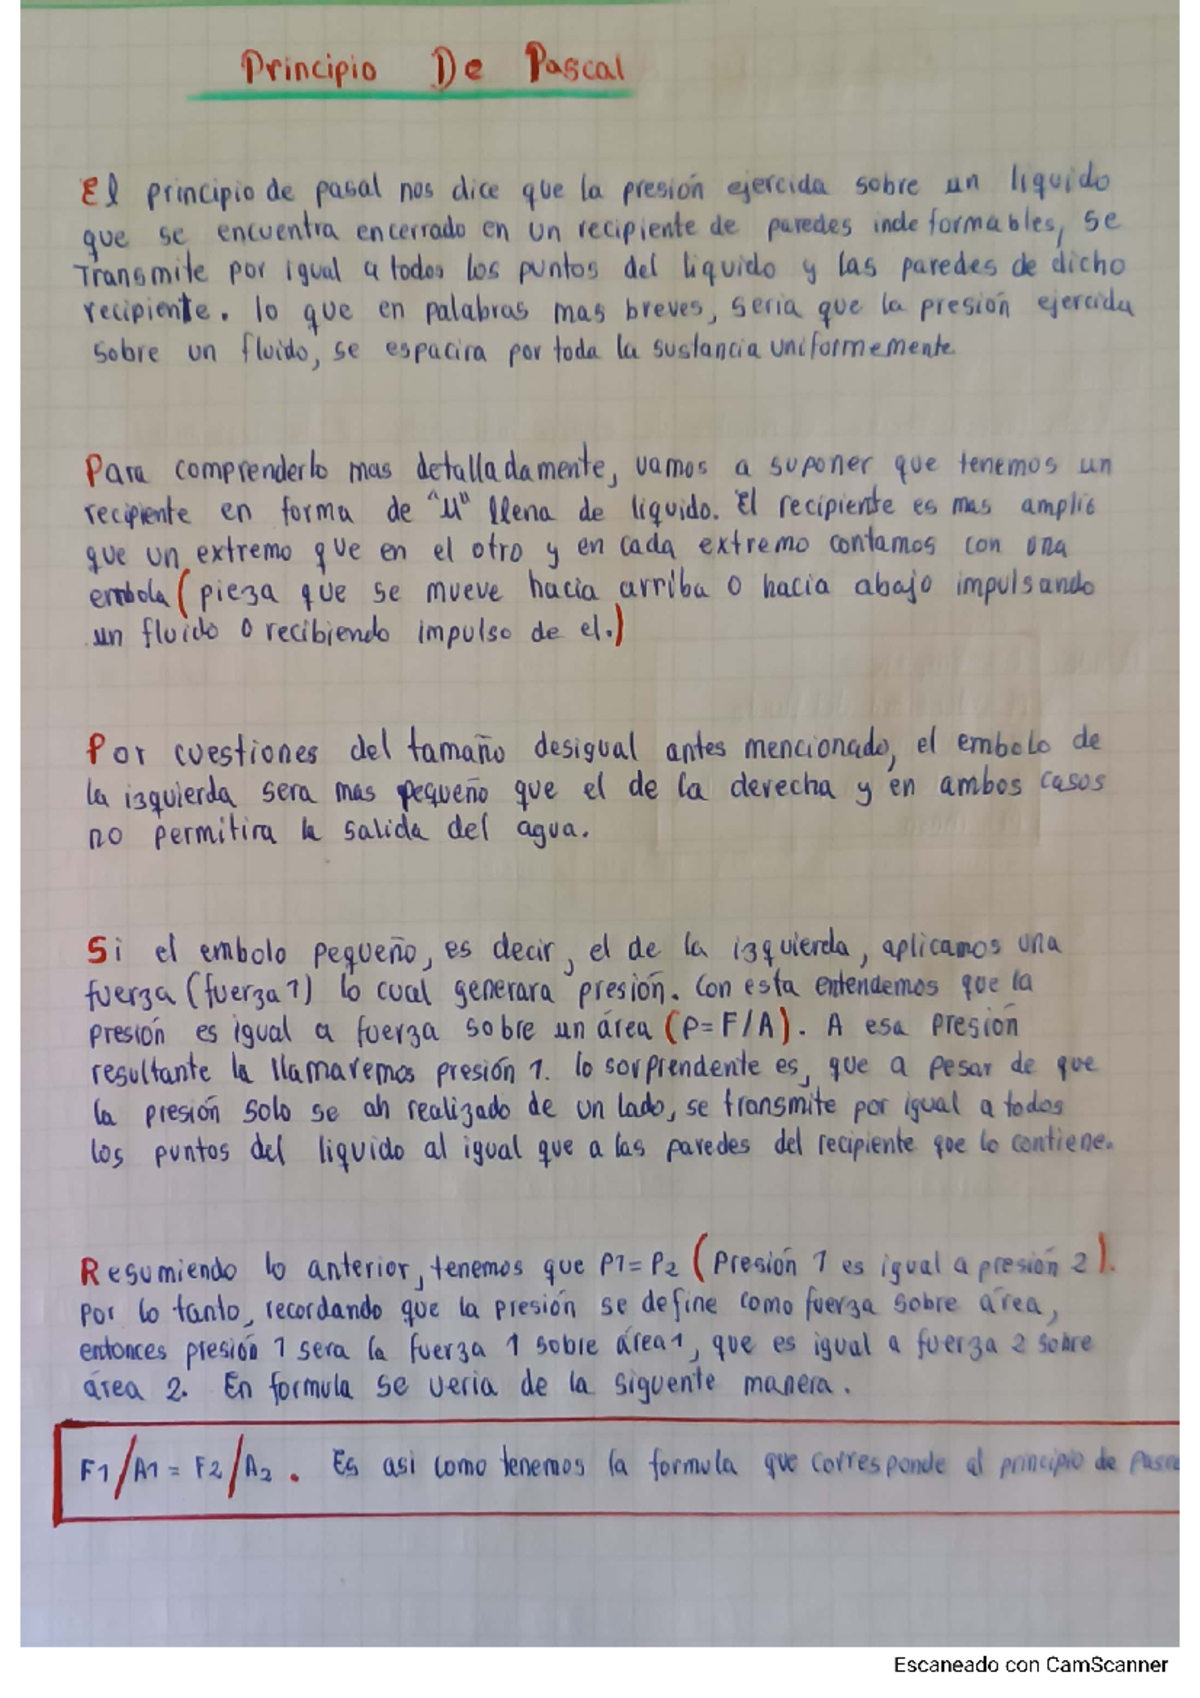 Principio De Pascal
El principio de pasal nos dice que la presión ejercida sobre un liquido
que se encuentra encerrado en un recipiente de paredes indeformables, se
Transmite por igual a todos los puntos del liquido y las paredes de dicho
recipiente. lo que en palabras mas breves, seria que la presión ejercida
sobre un fluido, se espacira por toda la sustancia uniformemente
Para comprenderlo mas detalladamente, vamos a suponer que tenemos un
recipiente en forma de "U" llena de liquido. El recipiente es mas amplio
que un extremo que en el otro y en cada extremo contamos con una
embola (pieza que se mueve hacia arriba o hacia abajo impulsando
un fluido o recibiendo impulso de el.)
Por cuestiones del tamaño desigual antes mencionado, el embolo de
la izquierda sera mas pequeño que el de la derecha y en ambos casos
no permitira la salida del agua.
Si el embolo pequeño, es decir, el de la izquierda, aplicamos una
fuerza (fuerza 1) lo cual generara presión. Con esta entendemos que la
presión es igual a fuerza sobre un área (P=F/A). A esa presión
resultante la llamaremos presión 1. lo sorprendente es, que a pesar de que
la presión solo se ah realizado de un lado, se transmite por igual a todos
los puntos del liquido al igual que a las paredes del recipiente que lo contiene.
Resumiendo lo anterior, tenemos que P1=P2 (Presión 1 es igual a presión 2).
Por lo tanto, recordando que la presión se define como fuerza sobre área,
entonces presión 1 sera la fuerza 1 sobre área1, que es igual a fuerza 2 sobre
área 2. En formula se veria de la siguente manera.
F1/A1 = F2/A2. Es asi como tenemos la formula que corresponde al principio de
Escaneado con CamScanner